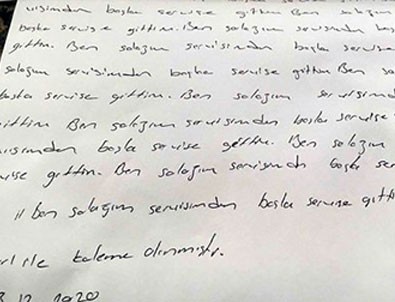 servisimden başka servise gittim Ben salağım
başka servise gittim. Ben salağım servisimden baş
gittim. Ben salağım servisimden başka servise
salağım servisimden başka servise gittim Ben sa
başka servise gittim. Ben salağım servisimd
gittim Ben salağım servisimden başka servise
visimden başka servise gittim. Ben salağım
vise gittim. Ben salağım servisimden başka ser
ii ben salağım servisimden başka servise gitti
ile kaleme alınmıştır.
12 1920